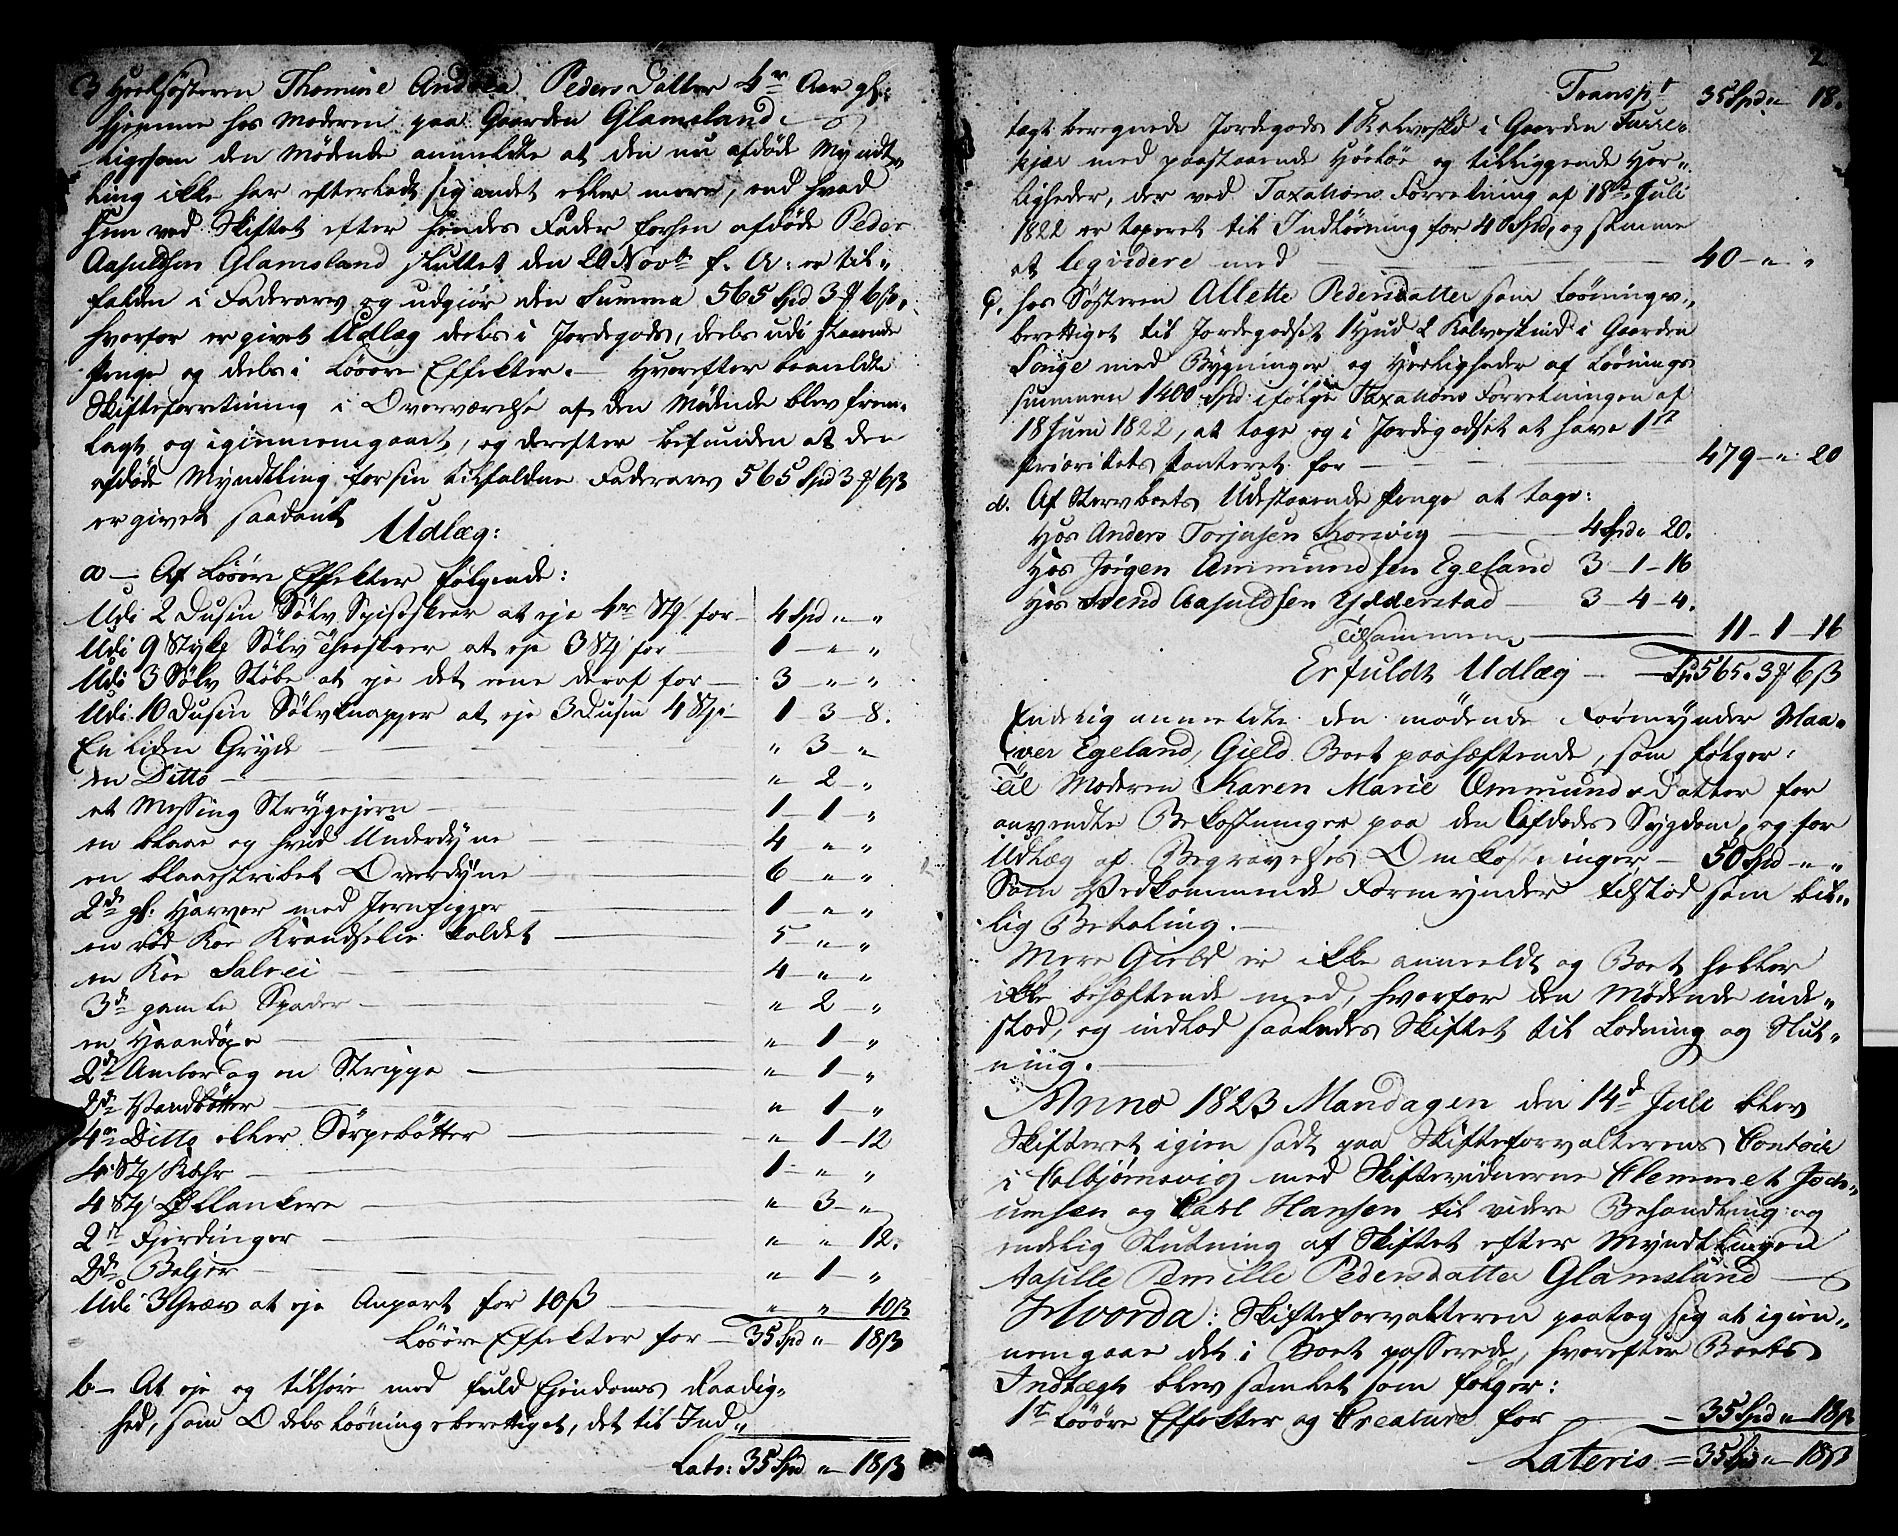 3 Heelsøsteren Thomine Andrea Peders Datter 4re Aar gl:
hjemme hos Moderen paa Gaarden Glamsland.
Ligesom den Mødende anmeldte at den nu afdøde Mynd-
ling ikke har efterladt sig andet eller mere, end hvad
hun ved Skiftet efter hendes Fader forhen afdøde Peder
Aasuldsen Glamsland sluttet den 20 Novbr f. A: er til-
falden i Faderarv og udgiør den Summa 565 Spd 3 # 6 ß,
hvorfor er givet Udlæg deels i Jordegods, deels udi staaende
Penge og deels i Løsøre Effekter. — Hvorefter bemeldte
Skifteforretning i Overværelse af den Mødende blev frem-
lagt og igiennemgaaet, og derefter befunden at den
afdøde Myndtling for sin tilfaldne Faderarv 565 Spd 3 # 6 ß
er givet saadant
Udlæg:
a — Af Løsøre Effekter følgende:
Udi 2 Dusin Sølv Spiseskeer at eje 4re Stk for — 4 Spd " — "
Udi 9 Stykr Sølv Theeskeer at eje 3 Stk for — 1 — " — "
Udi 3 Sølv Støbe at eje det ene deraf for — 3 — " — "
Udi 10 Dusin Sølvknapper at eje 3 Dusin 4 Stk — 1 — 3 — 8.
En liden Gryde — " 3 — "
en Ditto — " — 2 — "
et Messing Strygejern — 1 — 1 — "
en blaae og hvid Underdyne — 4 — " — "
en blaaestribet Overdyne — 6 — " — "
2de gl: Harver med Jernpigger — 1 — " — "
en rød Koe Krandselie kaldet — 5 — " — "
en Koe Salvei — 4 — " — "
3de gamle Spader — " — 2 — "
en Haandøxe — " — 1 — "
2de Amber og en Strippe — " — 1 — "
2de Vandbøtter — " — 1 — "
4re Ditto eller Sørpebøtter — " — 1 — 12
4 Stk Kahr — 1 — " — "
4 Stk Øllankere — " — 3 — "
2de Fjerdinger — " — " — 12.
2de Baljer — " — 1 — "
Udi 3 Græv at eje Anpart for 10 ß — " — " — 10 ß
Løsøre Effekter for — 35 Spd " — 18 ß
b — At eje og tilhøre med fuld Ejendoms Raadig-
hed, som Odelsløsningsberettiget, det til Ind-
Lats: 35 Spd " — 18 ß
2
Transpt 35 Spd " — 18.
tægt beregnede Jordegods 1 Kalveskd i Gaarden Furre-
kjær med paastaaende Høeløe og tilliggende Her-
ligheder, der ved Taxations Forretning af 18de Juli
1822 er taxeret til Indløsning for 40 Spd, og samme
at leqvidere med — 40 — " — "
c. hos Søsteren Allette Pedersdatter som Løsnings-
berettiget til Jordegodset 1 Hud 2 Kalveskind i Gaarden
Songe med Bygninger og Herligheder af Løsnings
summen 1400 Spd ifølge Taxations Forretningen af
18 Juni 1822, at tage og i Jordegodset at have 1ste
Prioritets Panteret for — 479 — " — 20
d. Af Stervboets Udestaaende Penge at tage:
Hos Anders Torjusen Korsvig — 4 Spd " 20.
Hos Jørgen Ammundsen Egeland 3 — 1 — 16
Hos Svend Aasuldsen Ydderstad — 3 — 4 — 4.
Tilsammen — 11 — 1 — 16
Erfuldt Udlæg — Spd 565. 3 # 6 ß
Endelig anmeldte den mødende Formynder Haa-
ver Egeland, Gield Boet paahæftende, som følger:
Til Moderen Karen Marie Ommunds Datter for
anvendte Bekostninger paa den Afdødes Sygdom, og for
Udlæg af Begravelses Omkostninger — 50 Spd — " — "
Som Vedkommende Formynder tilstod som bil-
lig Betaling. —
Mere Gield er ikke anmeldt og Boet heller
ikke behæftende med, hvorfor den Mødende inde-
stod, og indlod saaledes Skiftet til Lodning og Slut-
ning. —
Anno 1823 Mandagen den 14de Juli blev
Skifteret igien sadt paa Skifteforvalterens Contoir
i Colbjørnsvig med Skiftevidnerne Clemmet Joch-
umsen og Carl Hansen til videre Behandling og
endelig Slutning af Skiftet efter Myndtlingen
Aasille Pernille Pedersdatter Glamsland —
Hvorda: Skifteforvalteren paatog sig at igien-
nemgaae det i Boet passerede, hvorefter Boets
Indtægt blev samlet som følger:
1st Løsøre Effekter og Creature for — 35 Spd " — 18 ß
Lateris = 35 Spd " — 18 ß